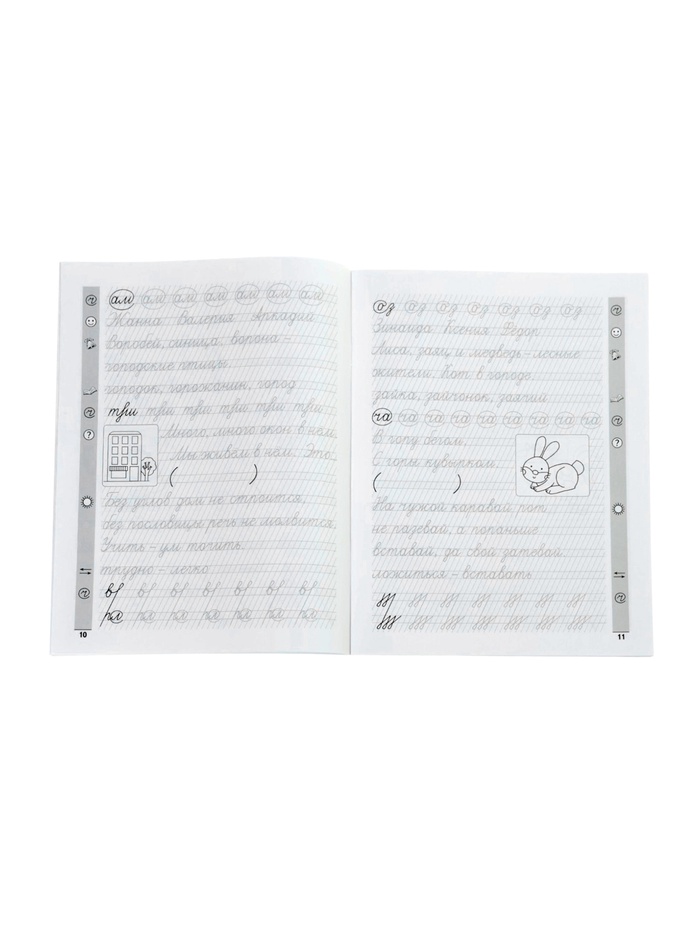 ам ам ам ам ам ам ам
Жанна Валерия Аркадий
Воробей, синица, ворона -
городские птицы.
городок, горожанин, город
Много, много окон в нём.
Мы живём в нём. Это
( )
Без углов дом не строится,
без пословицы речь не молвится.
Учить - ум точить.
трудно - легко
10
оз оз оз оз оз оз оз
Зинаида Ксения Фёдор
Лиса, заяц и медведь - лесные
жители. Кот в городе.
зайка, зайчонок, заячий
га га га га га га га га
В гору бегом,
С горы кувырком.
( )
На чужой каравай рот
не разевай, а пораньше
вставай, да свой затевай.
ложиться - вставать
11